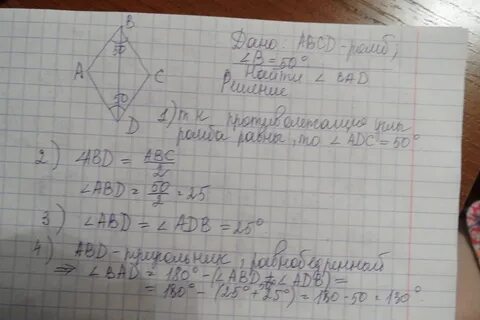 B
50
A
C
50
D
Дано: ABCD - ромб,
∠B = 50°
Найти ∠ BAD
Решение
1) т к противолежащие углы
ромба равны, то ∠ ADC = 50°
2) ∠ABD = ABC/2
∠ABD = 50/2 = 25
3) ∠ABD = ∠ADB = 25°
4) ABD - треугольник, равнобедренный
⇒ ∠BAD = 180° - (∠ABD + ∠ADB) =
= 180° - (25° + 25°) = 180 - 50 = 130°